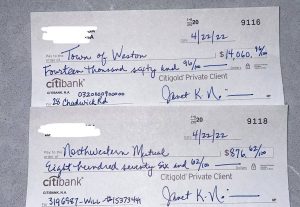 20
9116
4/22/22
Pay to the order of Town of Weston $ 14,060. 96/100
Fourteen thousand sixty and 96/100
citibank
Citigold Private Client
CITIBANK, N.A.
0320000900000
28 Chadwick Rd
Janet K. N
20
9118
4/22/22
Northwestern Mutual $ 876. 62/100
Eight hundred seventy six and 62/100
citibank
Citigold Private Client
CITIBANK, N.A.
Janet K. N